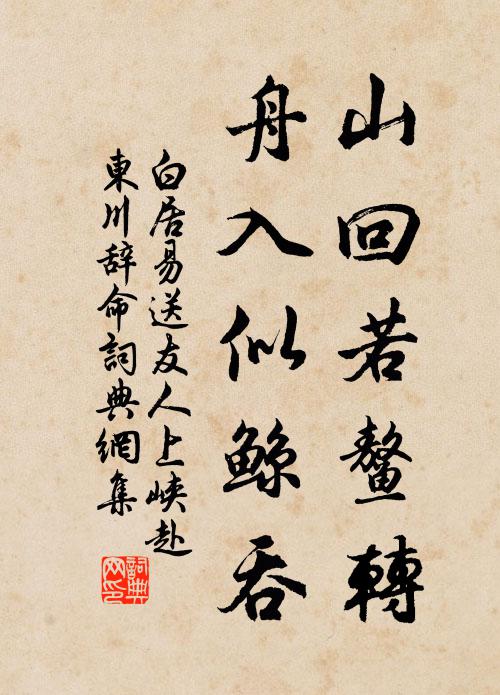 山回若鼇轉
舟入似鯨吞
白居易送友人上峽赴
東川辞命詞典網集
詞典
网印